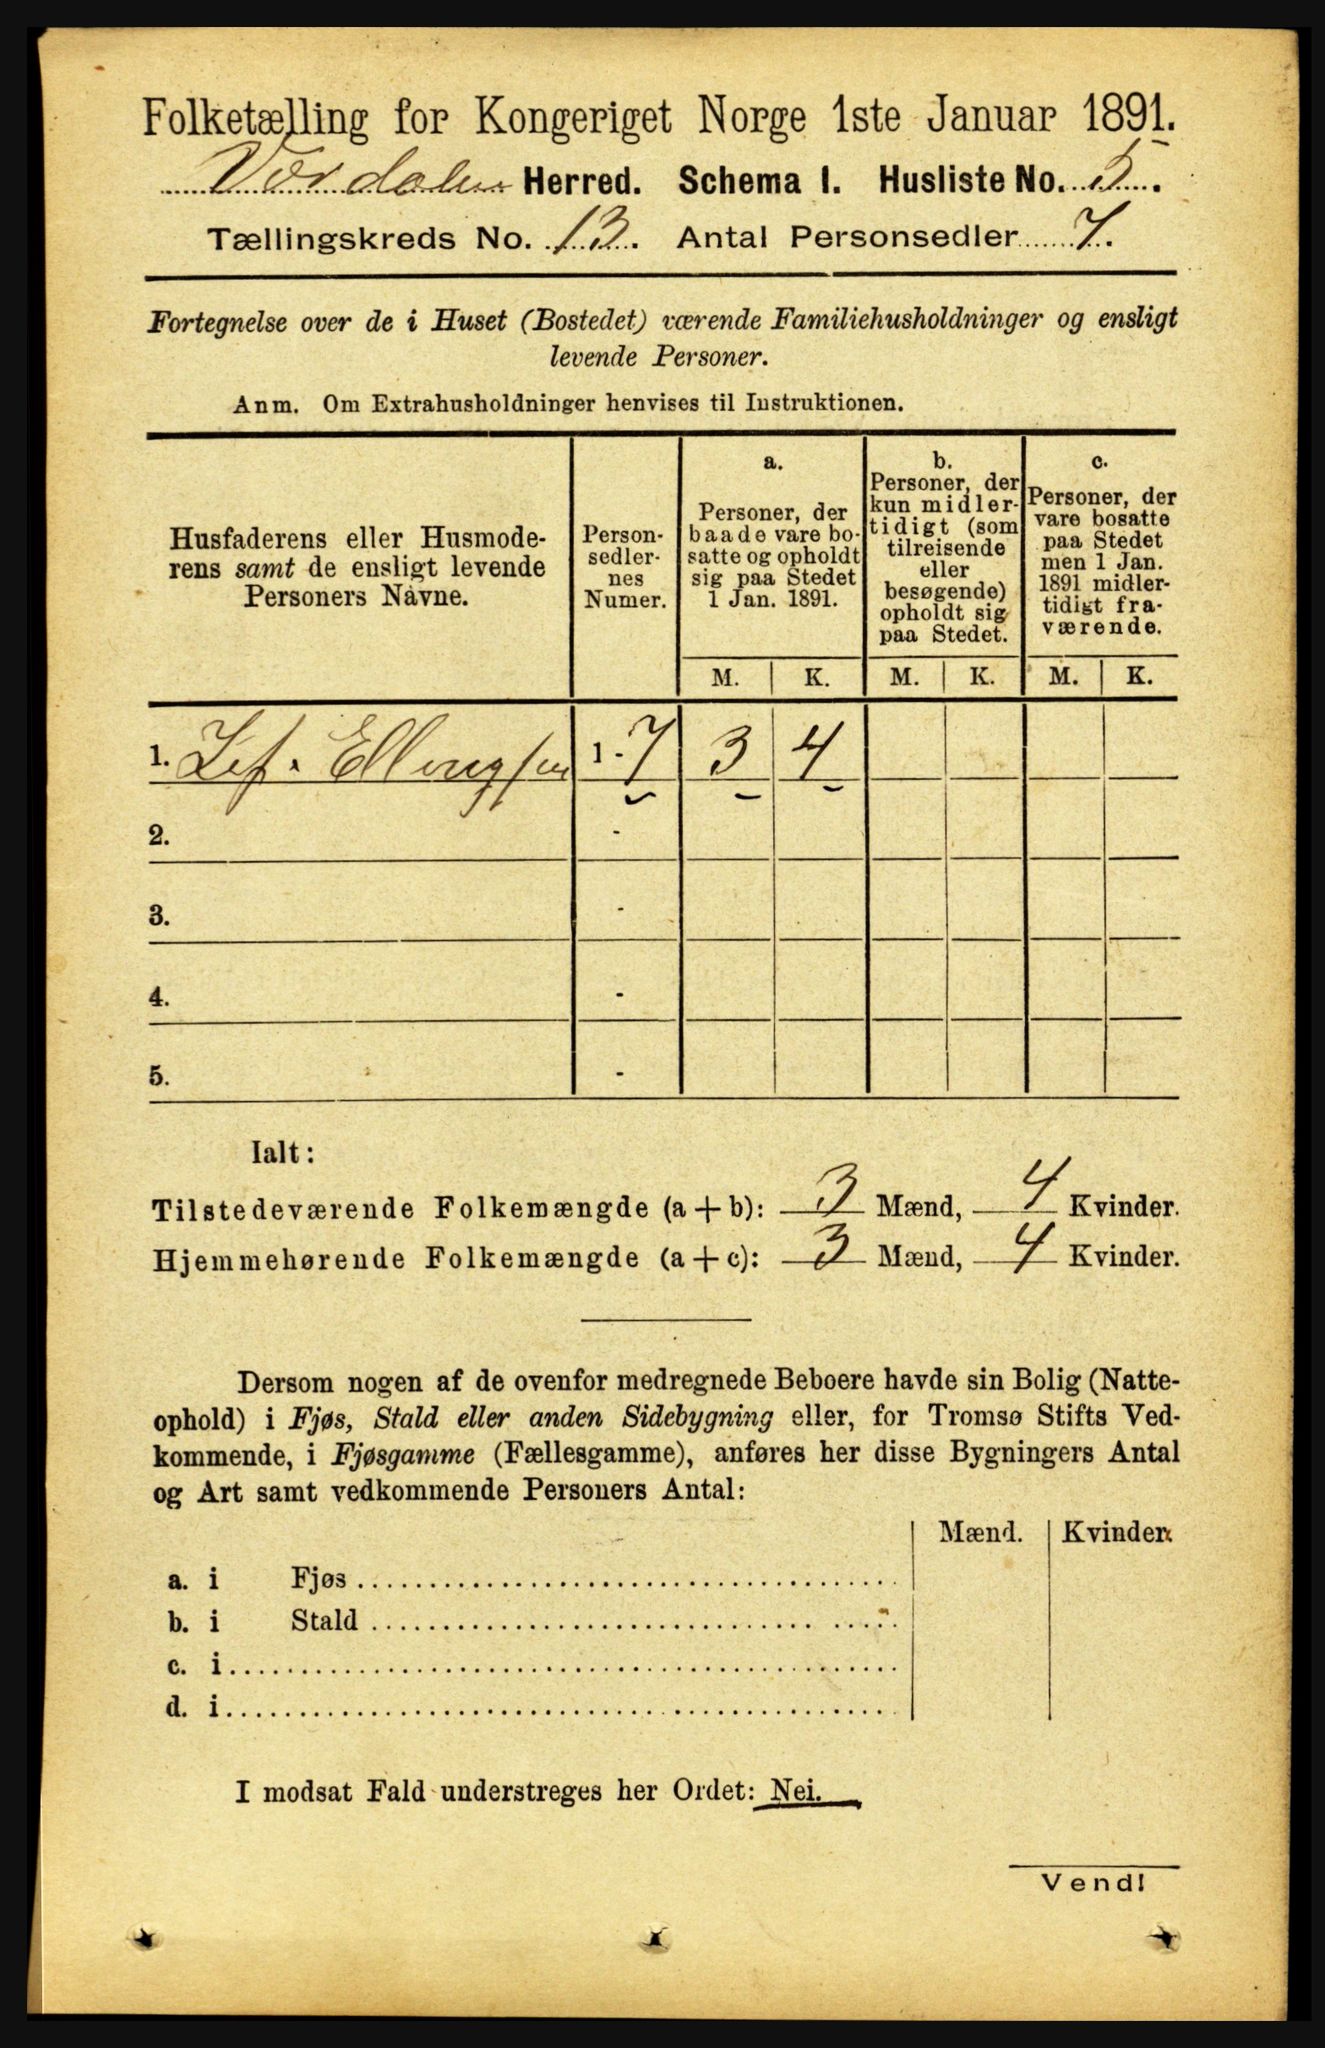 Folketælling for Kongeriget Norge 1ste Januar 1891.
Værdalens Herred. Schema I. Husliste No. 5.
Tællingskreds No. 13. Antal Personsedler 7.
Fortegnelse over de i Huset (Bostedet) værende Familiehusholdninger og ensligt
levende Personer.
Anm. Om Extrahusholdninger henvises til Instruktionen.
Husfaderens eller Husmode-
rens samt de ensligt levende
Personers Navne.
Person-
sedler-
nes
Numer.
a.
Personer, der
baade vare bo-
satte og opholdt
sig paa Stedet
1 Jan. 1891.
b.
Personer, der
kun midler-
tidigt (som
tilreisende
eller
besøgende)
opholdt sig
paa Stedet.
c.
Personer, der
vare bosatte
paa Stedet
men 1 Jan.
1891 midler-
tidigt fra-
værende.
M. K. M. K. M. K.
1. Ellingsen 1-7 3 4
2. -
3. -
4. -
5. -
Ialt:
Tilstedeværende Folkemængde (a+b): 3 Mænd, 4 Kvinder.
Hjemmehørende Folkemængde (a+c): 3 Mænd, 4 Kvinder.
Dersom nogen af de ovenfor medregnede Beboere havde sin Bolig (Natte-
ophold) i Fjøs, Stald eller anden Sidebygning eller, for Tromsø Stifts Ved-
kommende, i Fjøsgamme (Fællesgamme), anføres her disse Bygningers Antal
og Art samt vedkommende Personers Antal:
Mænd. Kvinder.
a. i Fjøs
b. i Stald
c. i
d. i
I modsat Fald understreges her Ordet: Nei.
Vend!